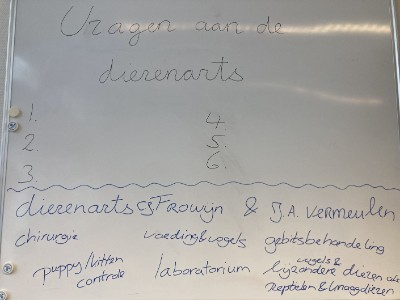 Vragen aan de
dierenarts
1. 4.
2. 5.
3. 6.
dierenarts Frowijn & J.A. Vermeulen
chirurgie voeding & vogels gebitsbehandeling
puppy/kitten laboratorium vogels &
controle bijzondere dieren als
reptielen & knaagdieren